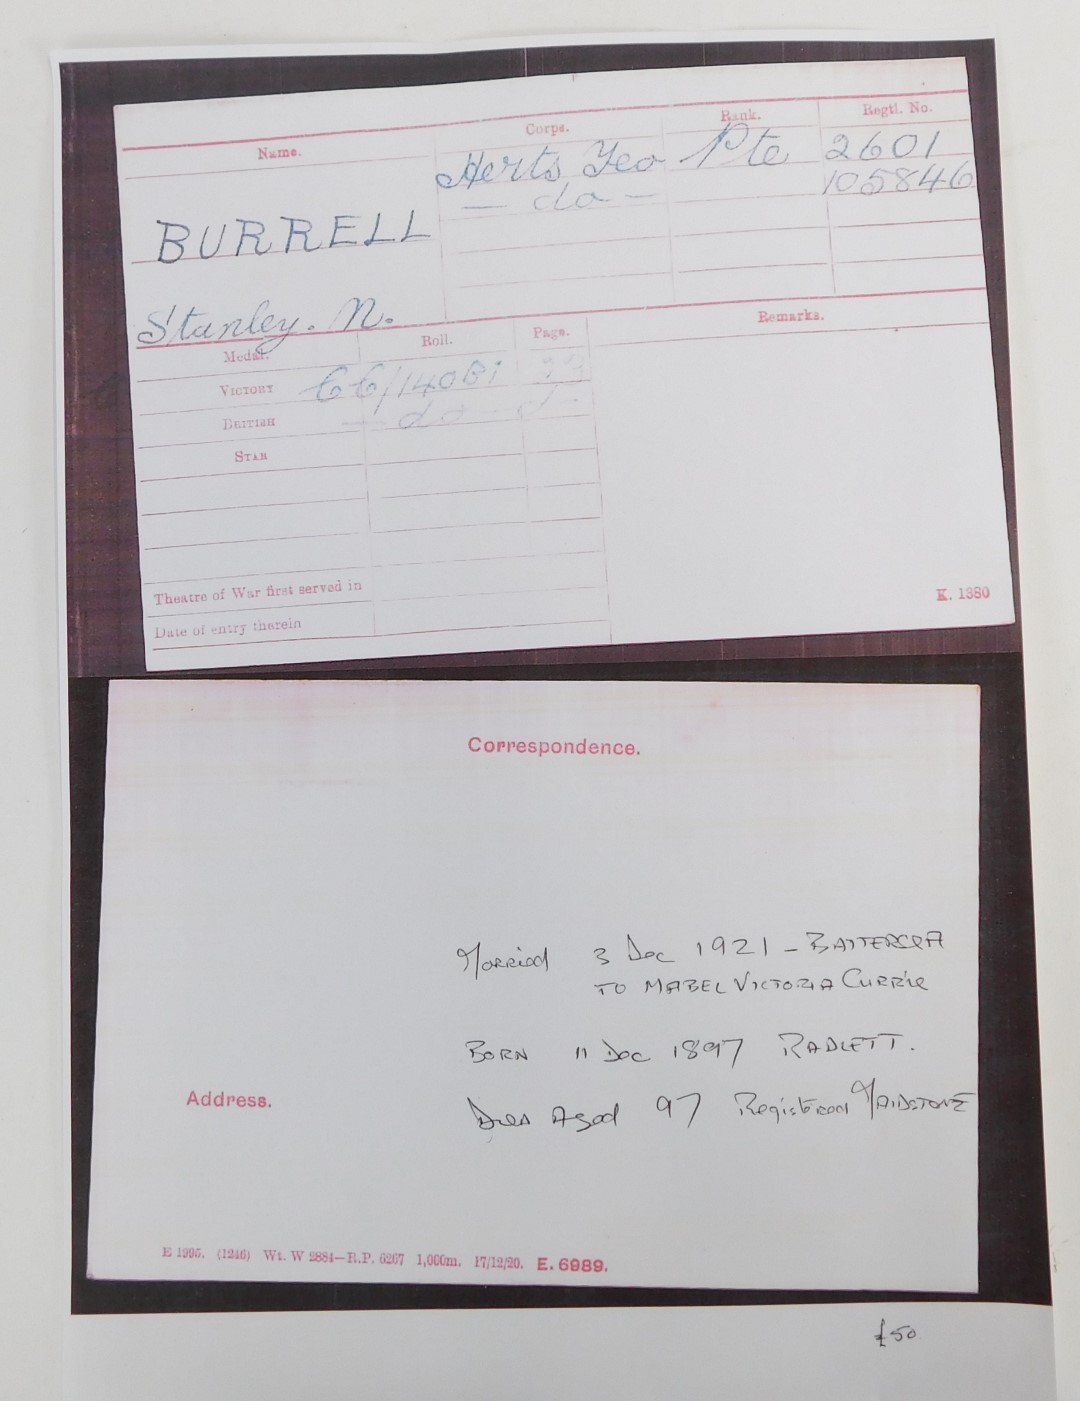 Name. Corps. Rank. Regtl. No.
Herts Yeo Pte 2601
— do — 105846
BURRELL
Stanley. N.
Medal. Roll. Page. Remarks.
VICTORY GG/140B1
BRITISH — do
STAR
Theatre of War first served in
Date of entry therein
K. 1380
Correspondence.
Married 3 Dec 1921 – BATTERSEA
TO MABEL VICTORIA CURRIE
BORN 11 Dec 1897 RADLETT.
Address.
Died Aged 97 Registered MAIDSTONE
E 1995. (1246) Wt. W 2884—R.P. 6267 1,000m. 17/12/20. E. 6989.
£50